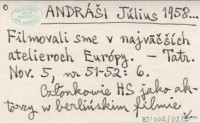 ANDRÁŠI Július 1958...
Filmovali sme v najväčších
atelieroch Európy. – Tatr.
Nov. 5, nr 51-52: 6.
Członkowie HS jako ak-
torzy w berlińskim filmie